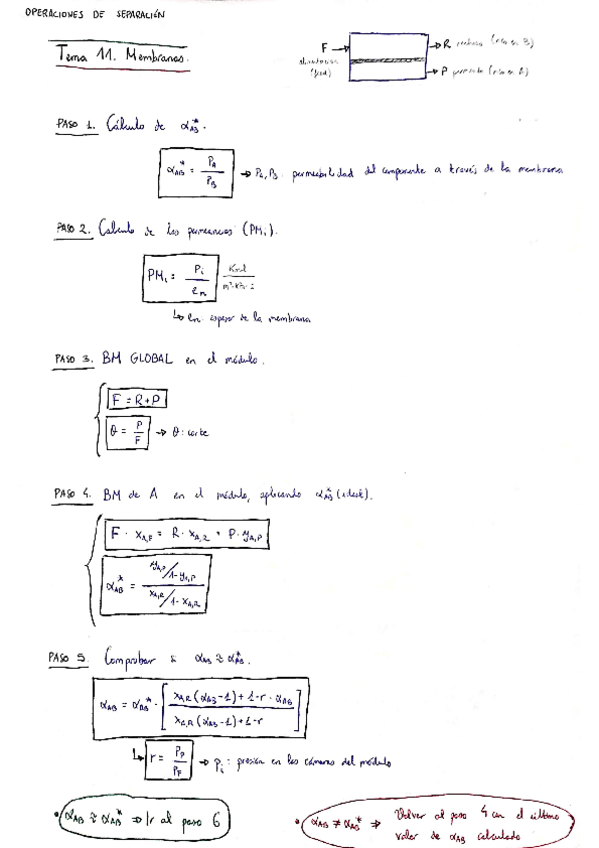 OPERACIONES DE SEPARACIÓN
Tema 11. Membranas.
F → → R (rico en B)
alimentación → P permeado (rico en A)
(feed)
PASO 1. Cálculo de α*AB.
α*AB = PA / PB → PA, PB: permeabilidad del componente a través de la membrana
PASO 2. Cálculo de las permeancias (PMi).
PMi = Pi / em
↳ em: espesor de la membrana
PASO 3. BM GLOBAL en el módulo.
F = R + P
θ = P / F → θ: corte
PASO 4. BM de A en el módulo, aplicando α*AB (ideal).
F · xA,F = R · xA,R + P · yA,P
α*AB = (yA,P / 1-yA,P) / (xA,R / 1-xA,R)
PASO 5. Comprobar si αAB ≈ α*AB.
αAB = α*AB · [ (xA,R (αAB - 1) + 1 - r · αAB) / (xA,R (αAB - 1) + 1 - r) ]
↳ r = PP / PF → Pi: presión en las cámaras del módulo
• αAB ≈ α*AB ⇒ Ir al paso 6
• αAB ≠ α*AB ⇒ Volver al paso 4 con el último
valor de αAB calculado